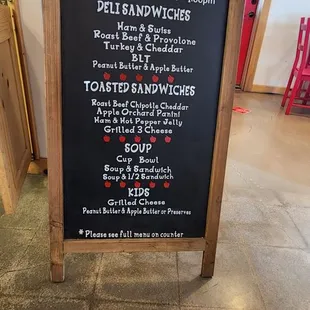 DELI SANDWICHES
Ham & Swiss
Roast Beef & Provolone
Turkey & Cheddar
BLT
Peanut Butter & Apple Butter
TOASTED SANDWICHES
Roast Beef Chipotle Cheddar
Apple Orchard Panini
Ham & Hot Pepper Jelly
Grilled 3 Cheese
SOUP
Cup Bowl
Soup & Sandwich
Soup & 1/2 Sandwich
KIDS
Grilled Cheese
Peanut Butter & Apple Butter or Preserves
*Please see full menu on counter